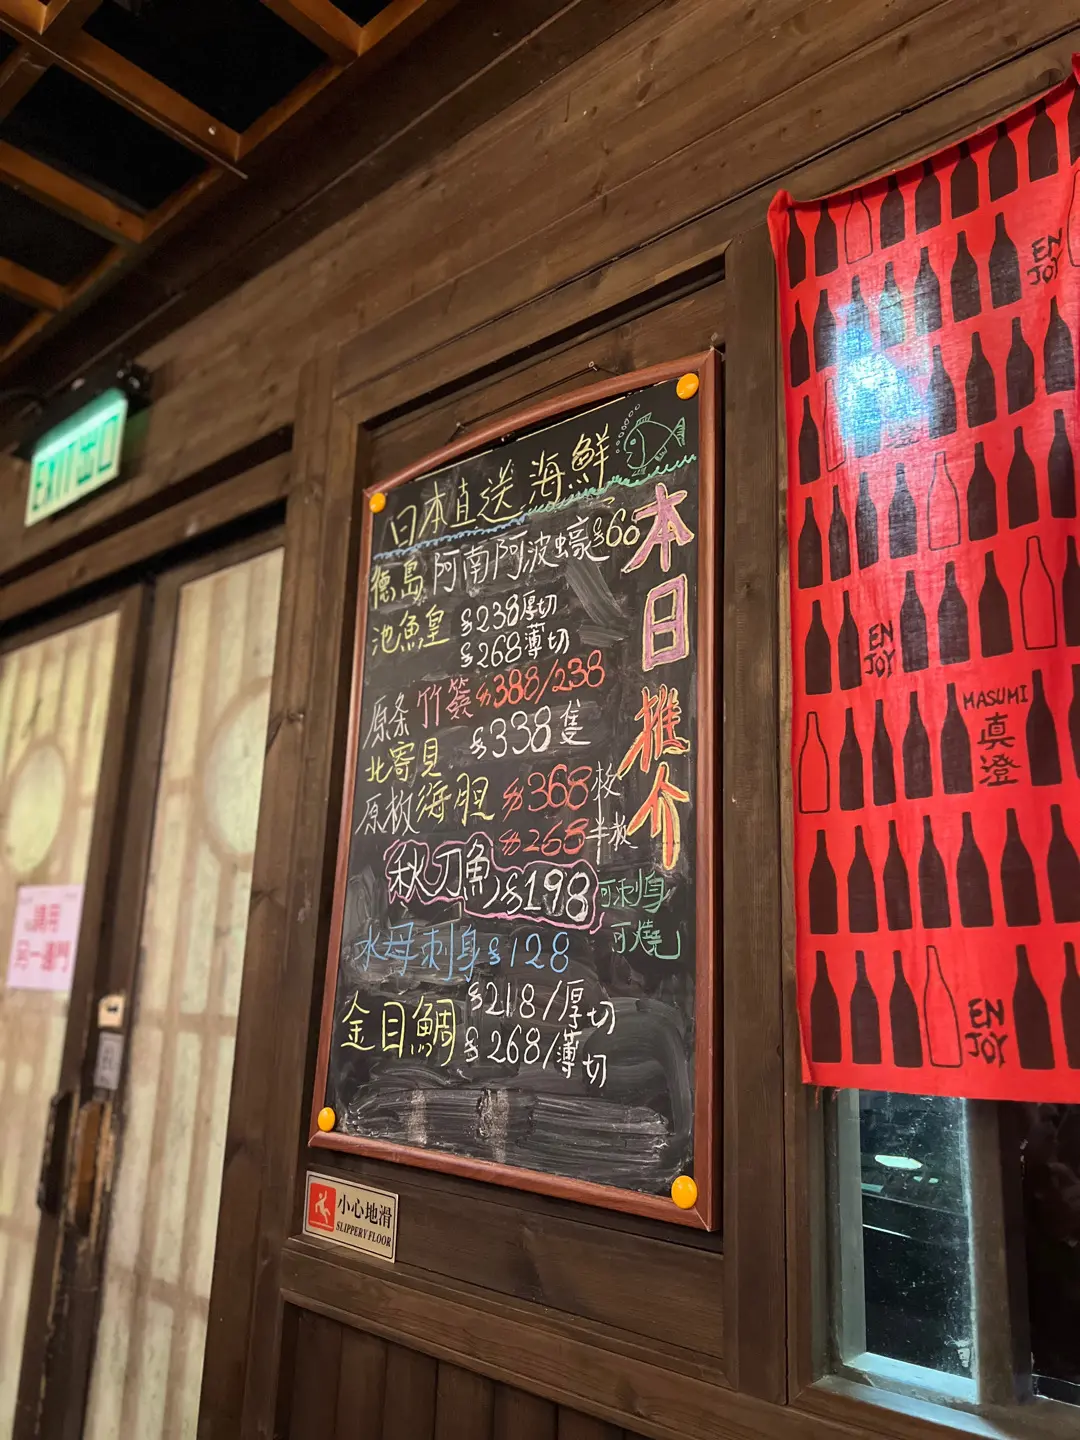 EXIT 出口
日本直送海鮮
本日推介
徳島 阿南阿波蠔 $68
池魚皇 $238厚切
$268薄切
原条竹簽 $388/238
北寄貝 $338隻
原枚海胆 $368枚
$268半枚
秋刀魚 $198 可刺身
可燒
水母刺身 $128
金目鯛 $218/厚切
$268/薄切
小心地滑
SLIPPERY FLOOR
請用
另一邊門
EN
JOY
EN
JOY
MASUMI
真
澄
EN
JOY